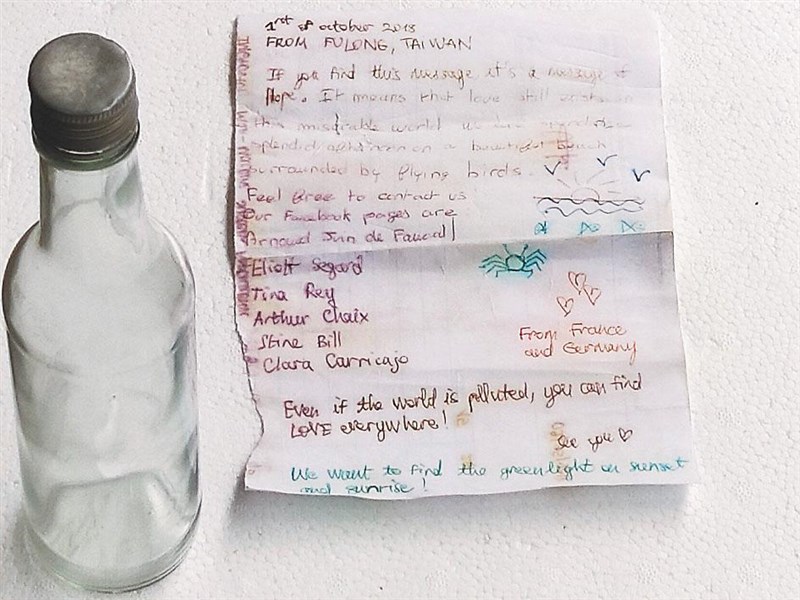 1rst of october 2018
FROM FULONG, TAIWAN
If you find this message it's a message of
Hope. It means that love still exists in
this miserable world we are spending
splendid afternoon on a beautiful beach
surrounded by flying birds.
Feel free to contact us
Our Facebook pages are
Arnaud Juin de Faucal
Eliott Segard
Tina Rey
Arthur Chaix
Stine Bill
Clara Carricajo
From France
and Germany
Even if the world is polluted, you can find
LOVE everywhere!
See you
We want to find the greenlight on sunset
and sunrise!